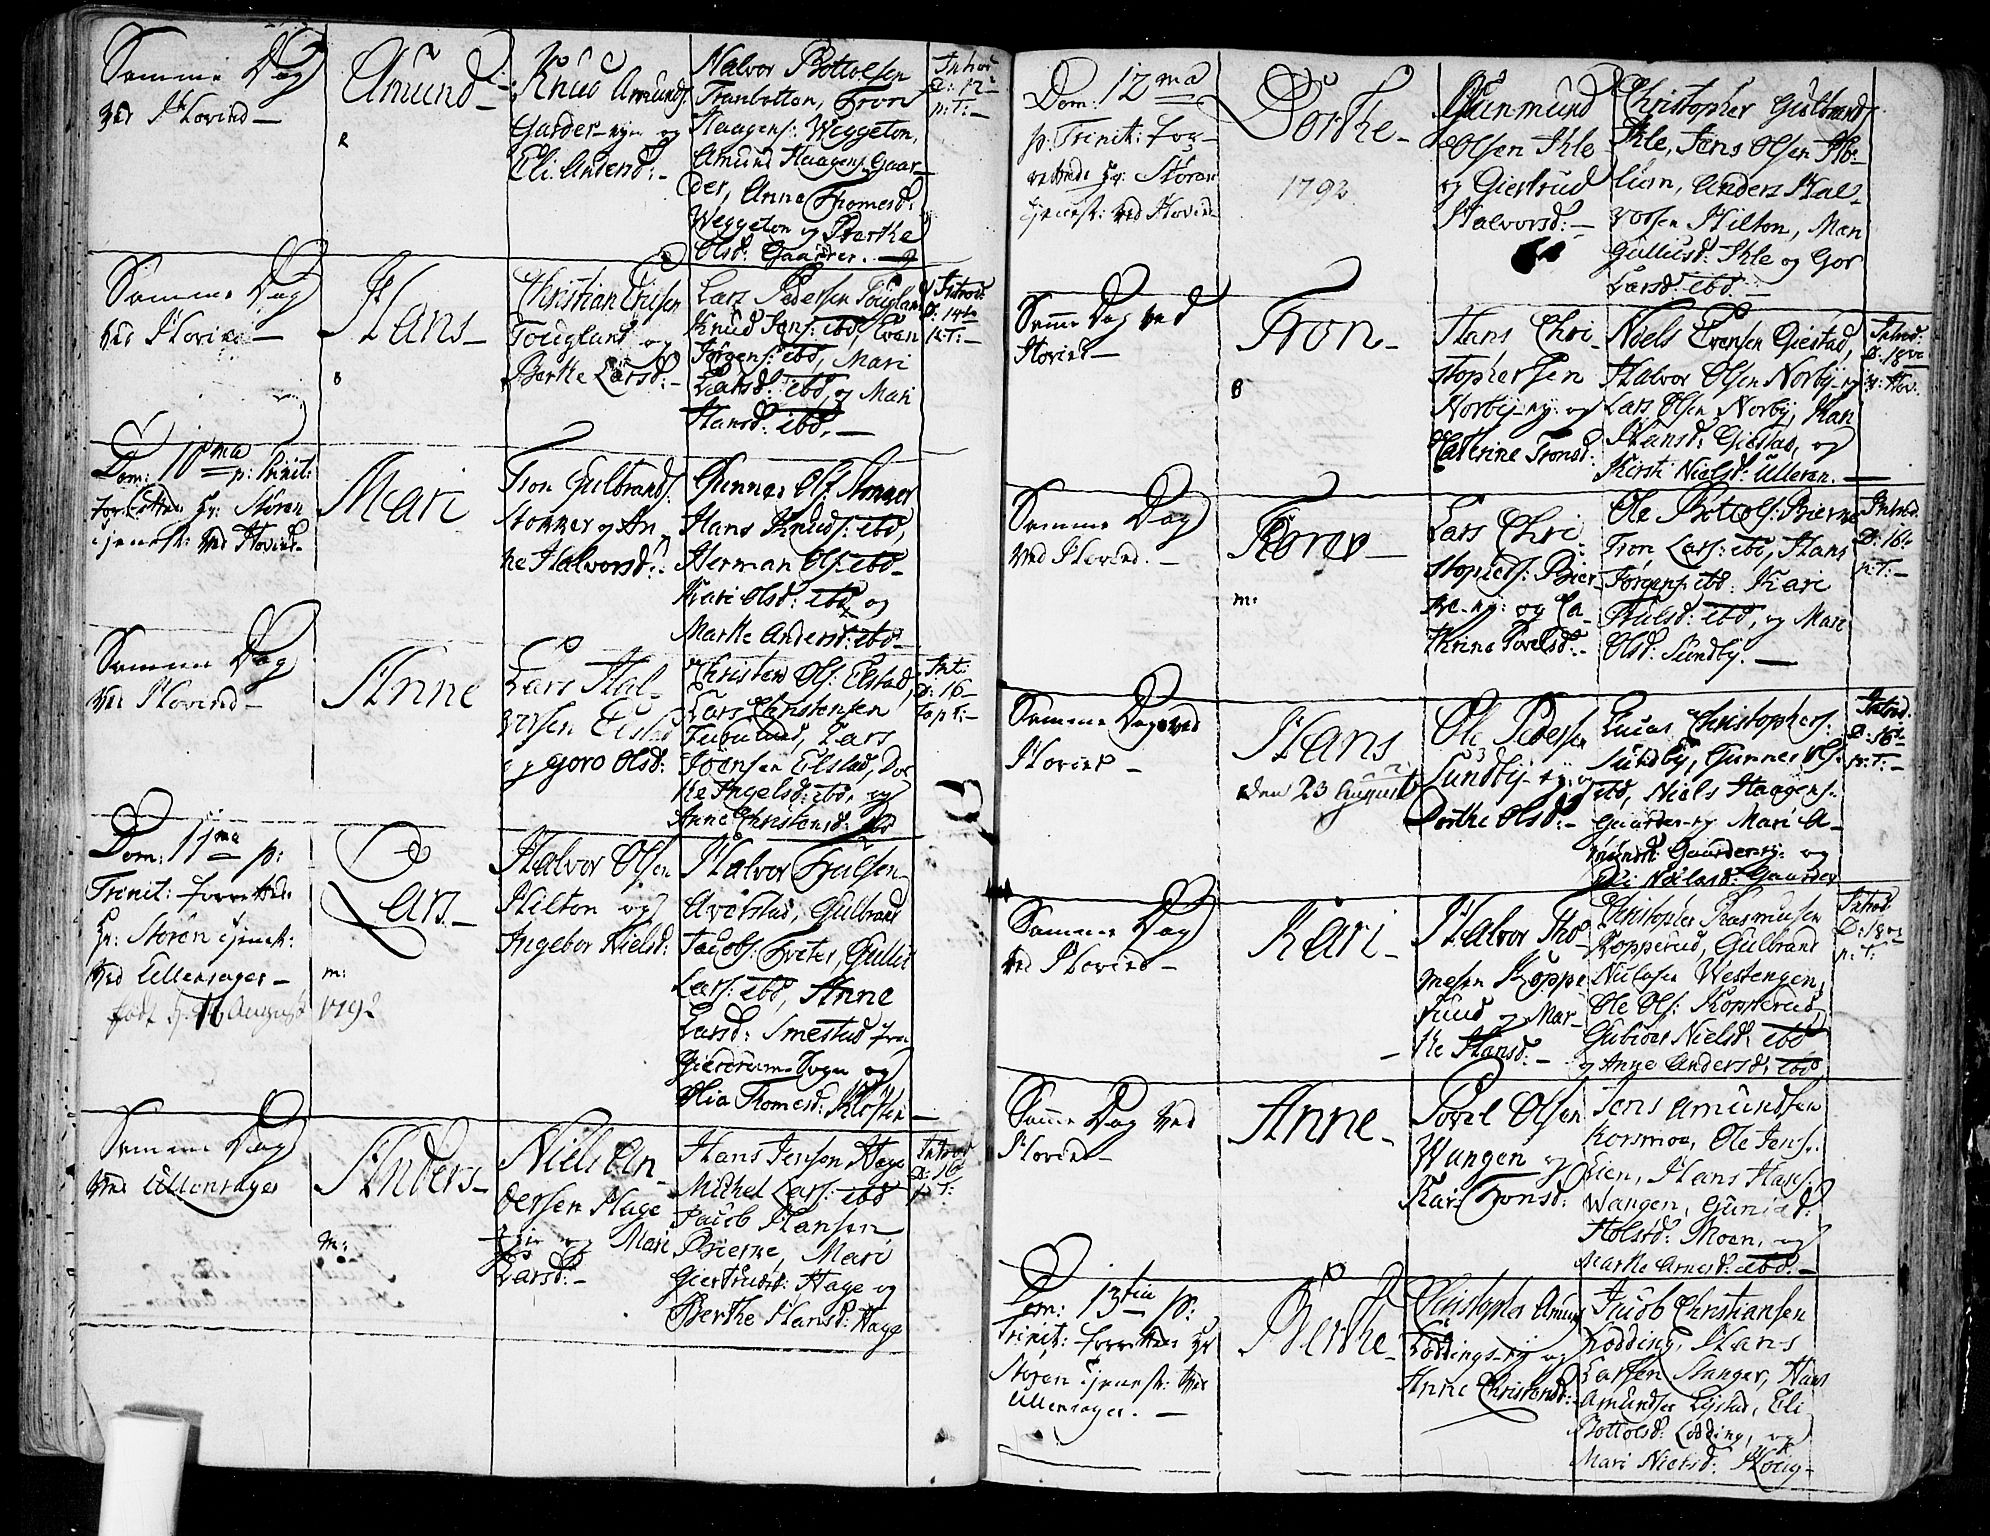 Samme Dag
ved Hovind —
Amund —
Knud Amunds:
Garder-nye og
Eli Andersd: —
Halvor Bottolsen
Tranbotten, Tron
Haagens: Weggeton,
Amund Haagens: Gaar—
der, Anne Thomesd:
Weggeton og Berthe
Olsd: Gaarder. —
Introd
D: 12
p: T: —
Samme Dag
ved Hovind —
Hans —
Christian
Fougland og
Berthe Larsd: —
Lars Pedersen Fougland
Knud Jens: ibd, Evan
Jørgens: ibd, Mari
Larsd: ibd, og Mari
Hansd: ibd. —
Introd:
D: 14
p: T: —
Dom: 10ma p: Trinit:
Hr: Støren
tjenest: ved Hovind —
Mari
Tron Gulbrands:
Stokker og An
ne Halvorsd: —
Gunner Ols: Stokker
Hans Knuds: ibd,
Herman Ols: ibd —
Kari Olsd: ibd, og
Marthe Andersd: ibd —
Samme Dag
ved Hovind —
Anne
Lars Hal—
vorsen Elstad
og Goro Olsd:
Christen Ols: Elstad,
Lars Christensen
Lars
Joensen Elstad, Dor
the Ingelsd: ibd, og
Anne Christensd: ibd
Int:
D: 16
p T: —
Dom: 11ma p:
Trinit: forrettede
Hr: Støren tjenest:
ved Ullensager —
født 16 August
Lars —
m:
1792
Halvor Olsen
Hilton og
Ingebor Nielsd:
Halvor Trulsen
Averstad, Gulbrand
Jacobs: Tveter, Gullik
Lars: ibd, Anne
Larsd: Smestad fra
Gierdrum Sogn og
Thomesd: Kløften —
Samme Dag
ved Ullensager
Anders —
m:
Niels An
dersen Hage
og Mari
Larsd: —
Hans Jenson Hage
Michel Lars: ibd
Jacob Hansen
Bierke, Mari
Giertrudsd: Hage og
Berthe Hansd: Hage
Introd
D: 16
p: T: —
Dom: 12ma
p: Trinit: for—
rettede Hr: Støren
tjenest: ved Hovind
Dorthe —
1792
Gunmund
Olsen Ihle
og Giertrud
Halvorsd: —
Christopher Gulbrands:
Ihle, Jens Olsen
Anders Hal—
vorsen Hilton, Mari
Gullusd: Ihle og Gor
Larsd: ibd —
Samme Dag ved
Hovind —
Tron —
Hans Chri—
stophersen
Norby-ny: og
Catherine Tronsd:
Niels Evensen Giestad,
Halvor Olsen Norby-ny
Lars Olsen Norby, Kari
Hansd: Giestad, og
Kirsti Nielsd: Ulleren. —
Introd:
D: 18
Samme Dag
ved Hovind. —
m:
Lars Chri
stophers: Bier—
ke-ny: og Ca
thrine Povelsd: —
Ole Bottols: Bierke
Tron Lars: ibd, Hans
Jørgens: ibd: Kari
ibd, og Mari
Olsd: Sundby. —
Introd
D: 16
p: T: —
Samme Dag ved
Hovind —
Hans
den 23 August
Ole Pedersen
Sundby-ny: og
Dorthe Olsd: —
Lucas Christophers:
Sundby, Gunner Ols:
ibd, Niels Haagens:
Gaarder-ny Mari A—
mundsd: Gaarder-ny: og
Nielsd: Gaarder
Introd:
D: 16
p: T: —
Samme Dag
ved Hovind —
Kari —
Halvor Tho—
mesen Koppe
rud og Mar—
the Hansd: —
Christopher Rasmusen
Kopperud, Gulbrand
Niclasen Westengen,
Ole Ols: Kopperud,
Nielsd: ibd
og Anne Andersd: ibd
Introd
D: 18
p: T:
Samme Dag ved
Hovind —
Anne —
Povel Olsen
Wangen og
Kari Tronsd:
Jens Amundsen
Korsmoe, Ole Jens:
Eien, Hans Hans:
Wangen, Gunild
Moen, og
Marthe Arnesd: ibd. —
Dom: 13tia p:
Trinit: forrettede Hr
Støren tjenest: ved
Ullensager. —
Berthe —
Christopher Amunds
Løddings-ny og
Anne Christensd: —
Jacob Christiansen
Lødding, Hans
Larsen Stanger, Hans
Amundsen Eli
Bottolsd: Lødding, og
Mari Nielsd: